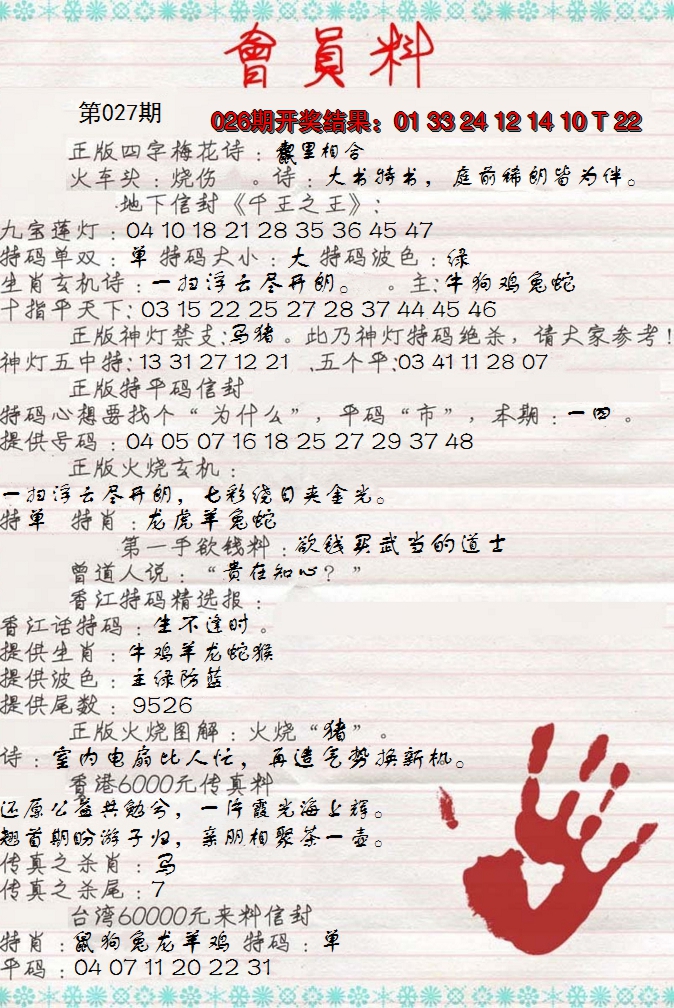 會員料
第027期
026期开奖结果：01 33 24 12 14 10 T 22
正版四字梅花诗：表里相合
火车头：烧伤 。诗：大书特书，庭前稀朗皆为伴。
地下信封《千王之王》：
九宝莲灯：04 10 18 21 28 35 36 45 47
特码单双：单 特码大小：大 特码波色：绿
生肖玄机诗：一扫浮云尽开朗。 。主:牛狗鸡兔蛇
十指平天下: 03 15 22 25 27 28 37 44 45 46
正版神灯禁支:马猪。此乃神灯特码绝杀，请大家参考!
神灯五中特: 13 31 27 12 21 .五个平:03 41 11 28 07
正版特平码信封
特码心想要找个“为什么”，平码“市”，本期：一四。
提供号码：04 05 07 16 18 25 27 29 37 48
正版火烧玄机：
一扫浮云尽开朗，七彩绕日夹金光。
特单 特肖：龙虎羊兔蛇
第一手欲钱料：欲钱买武当的道士
曾道人说：“贵在知心？”
香江特码精选报：
香江话特码：生不逢时。
提供生肖：牛鸡羊龙蛇猴
提供波色：主绿防蓝
提供尾数：9526
正版火烧图解：火烧“猪”。
诗：室内电扇比人忙，再造气势换新机。
香港6000元传真料
还原公益共勉兮，一片霞光海上辉。
翘首期盼游子归，亲朋相聚茶一壶。
传真之杀肖：马
传真之杀尾：7
台湾60000元来料信封
特肖：鼠狗兔龙羊鸡 特码：单
平码：04 07 11 20 22 31